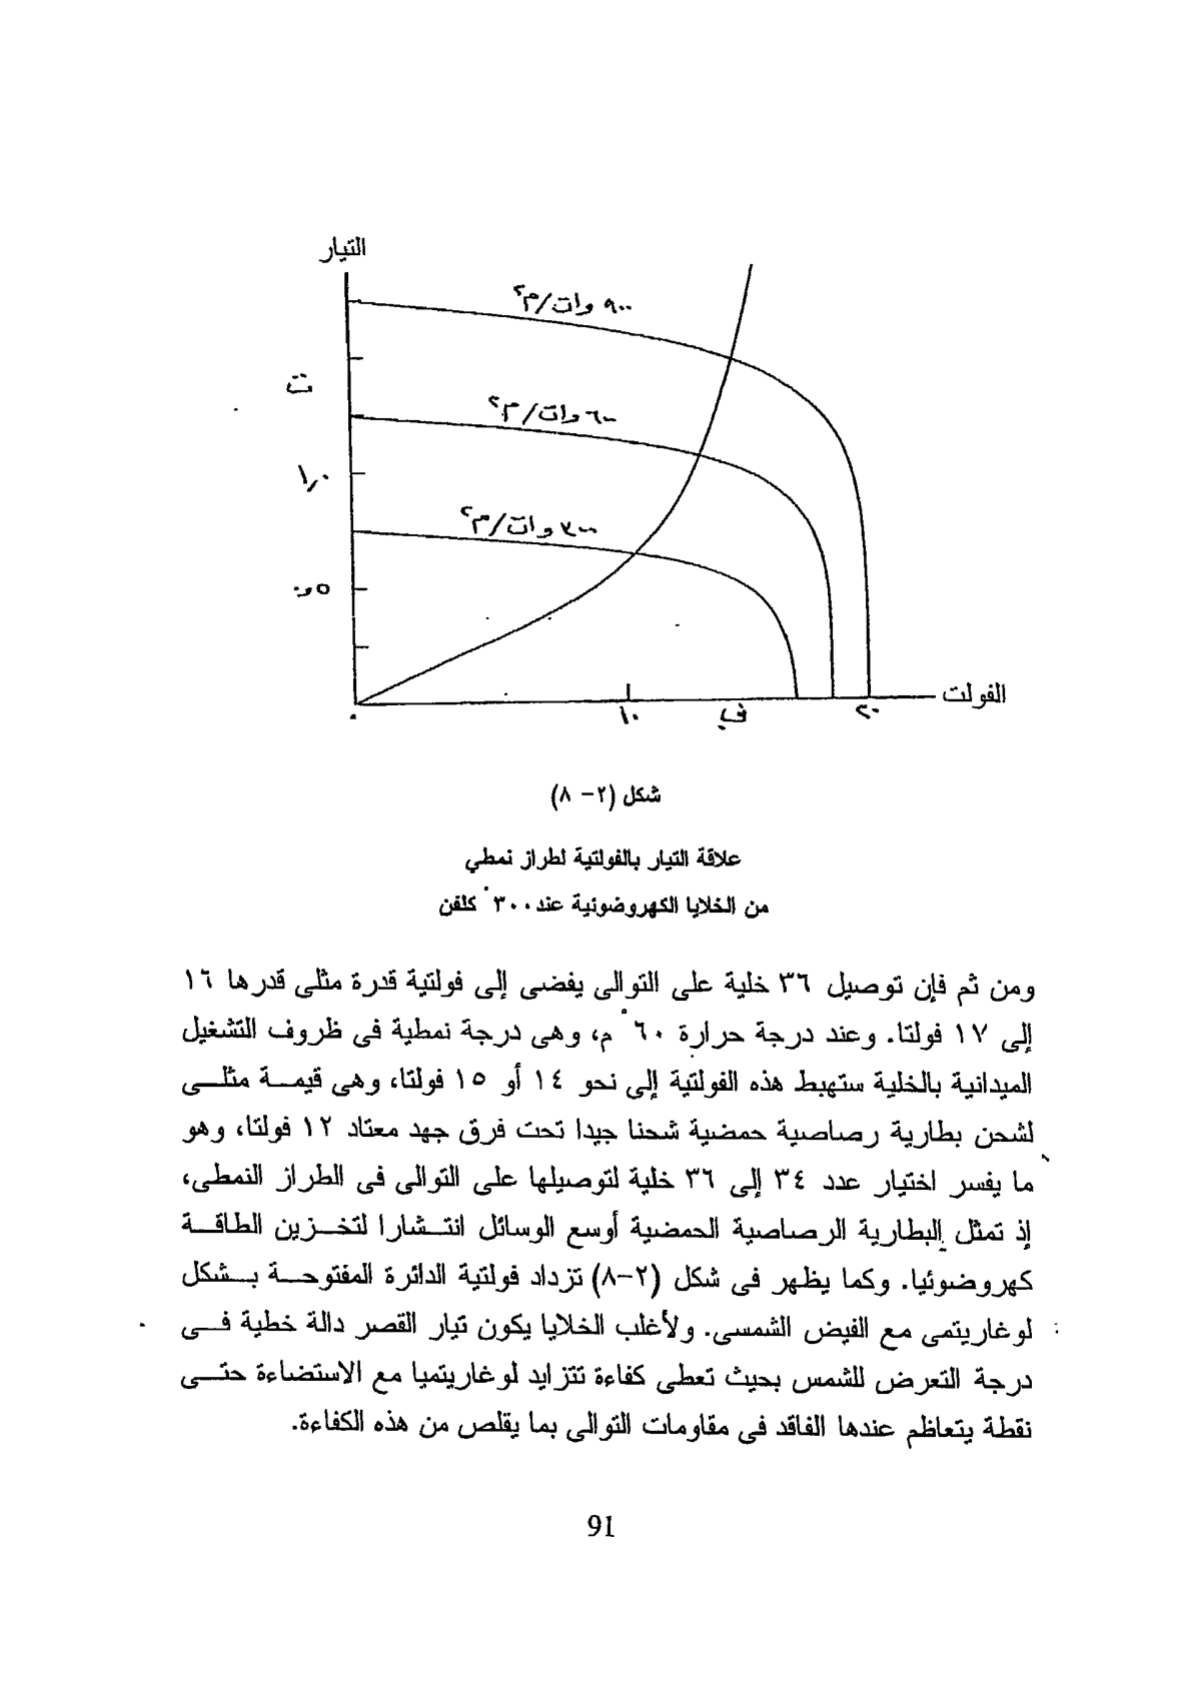 التيار
٩٠٠ وات/م٢
ت
٦٠٠ وات/م٢
١٫٠
٣٠٠ وات/م٢
٠٫٥
الفولت
٠
١٠
ف
٢٠
شكل (٢- ٨)
علاقة التيار بالفولتية لطراز نمطي
من الخلايا الكهروضوئية عند ٣٠٠° كلفن
ومن ثم فإن توصيل ٣٦ خلية على التوالى يفضى إلى فولتية قدرة مثلى قدرها ١٦
إلى ١٧ فولتا. وعند درجة حرارة ٦٠° م، وهى درجة نمطية فى ظروف التشغيل
الميدانية بالخلية ستهبط هذه الفولتية إلى نحو ١٤ أو ١٥ فولتا، وهى قيمة مثلى
لشحن بطارية رصاصية حمضية شحنا جيدا تحت فرق جهد معتاد ١٢ فولتا، وهو
ما يفسر اختيار عدد ٣٤ إلى ٣٦ خلية لتوصيلها على التوالى فى الطراز النمطى،
إذ تمثل البطارية الرصاصية الحمضية أوسع الوسائل انتشارا لتخزين الطاقة
كهروضوئيا. وكما يظهر فى شكل (٢-٨) تزداد فولتية الدائرة المفتوحة بشكل
لوغاريتمى مع الفيض الشمسى. ولأغلب الخلايا يكون تيار القصر دالة خطية فى
درجة التعرض للشمس بحيث تعطى كفاءة تتزايد لوغاريتميا مع الاستضاءة حتى
نقطة يتعاظم عندها الفاقد فى مقاومات التوالى بما يقلص من هذه الكفاءة.
91